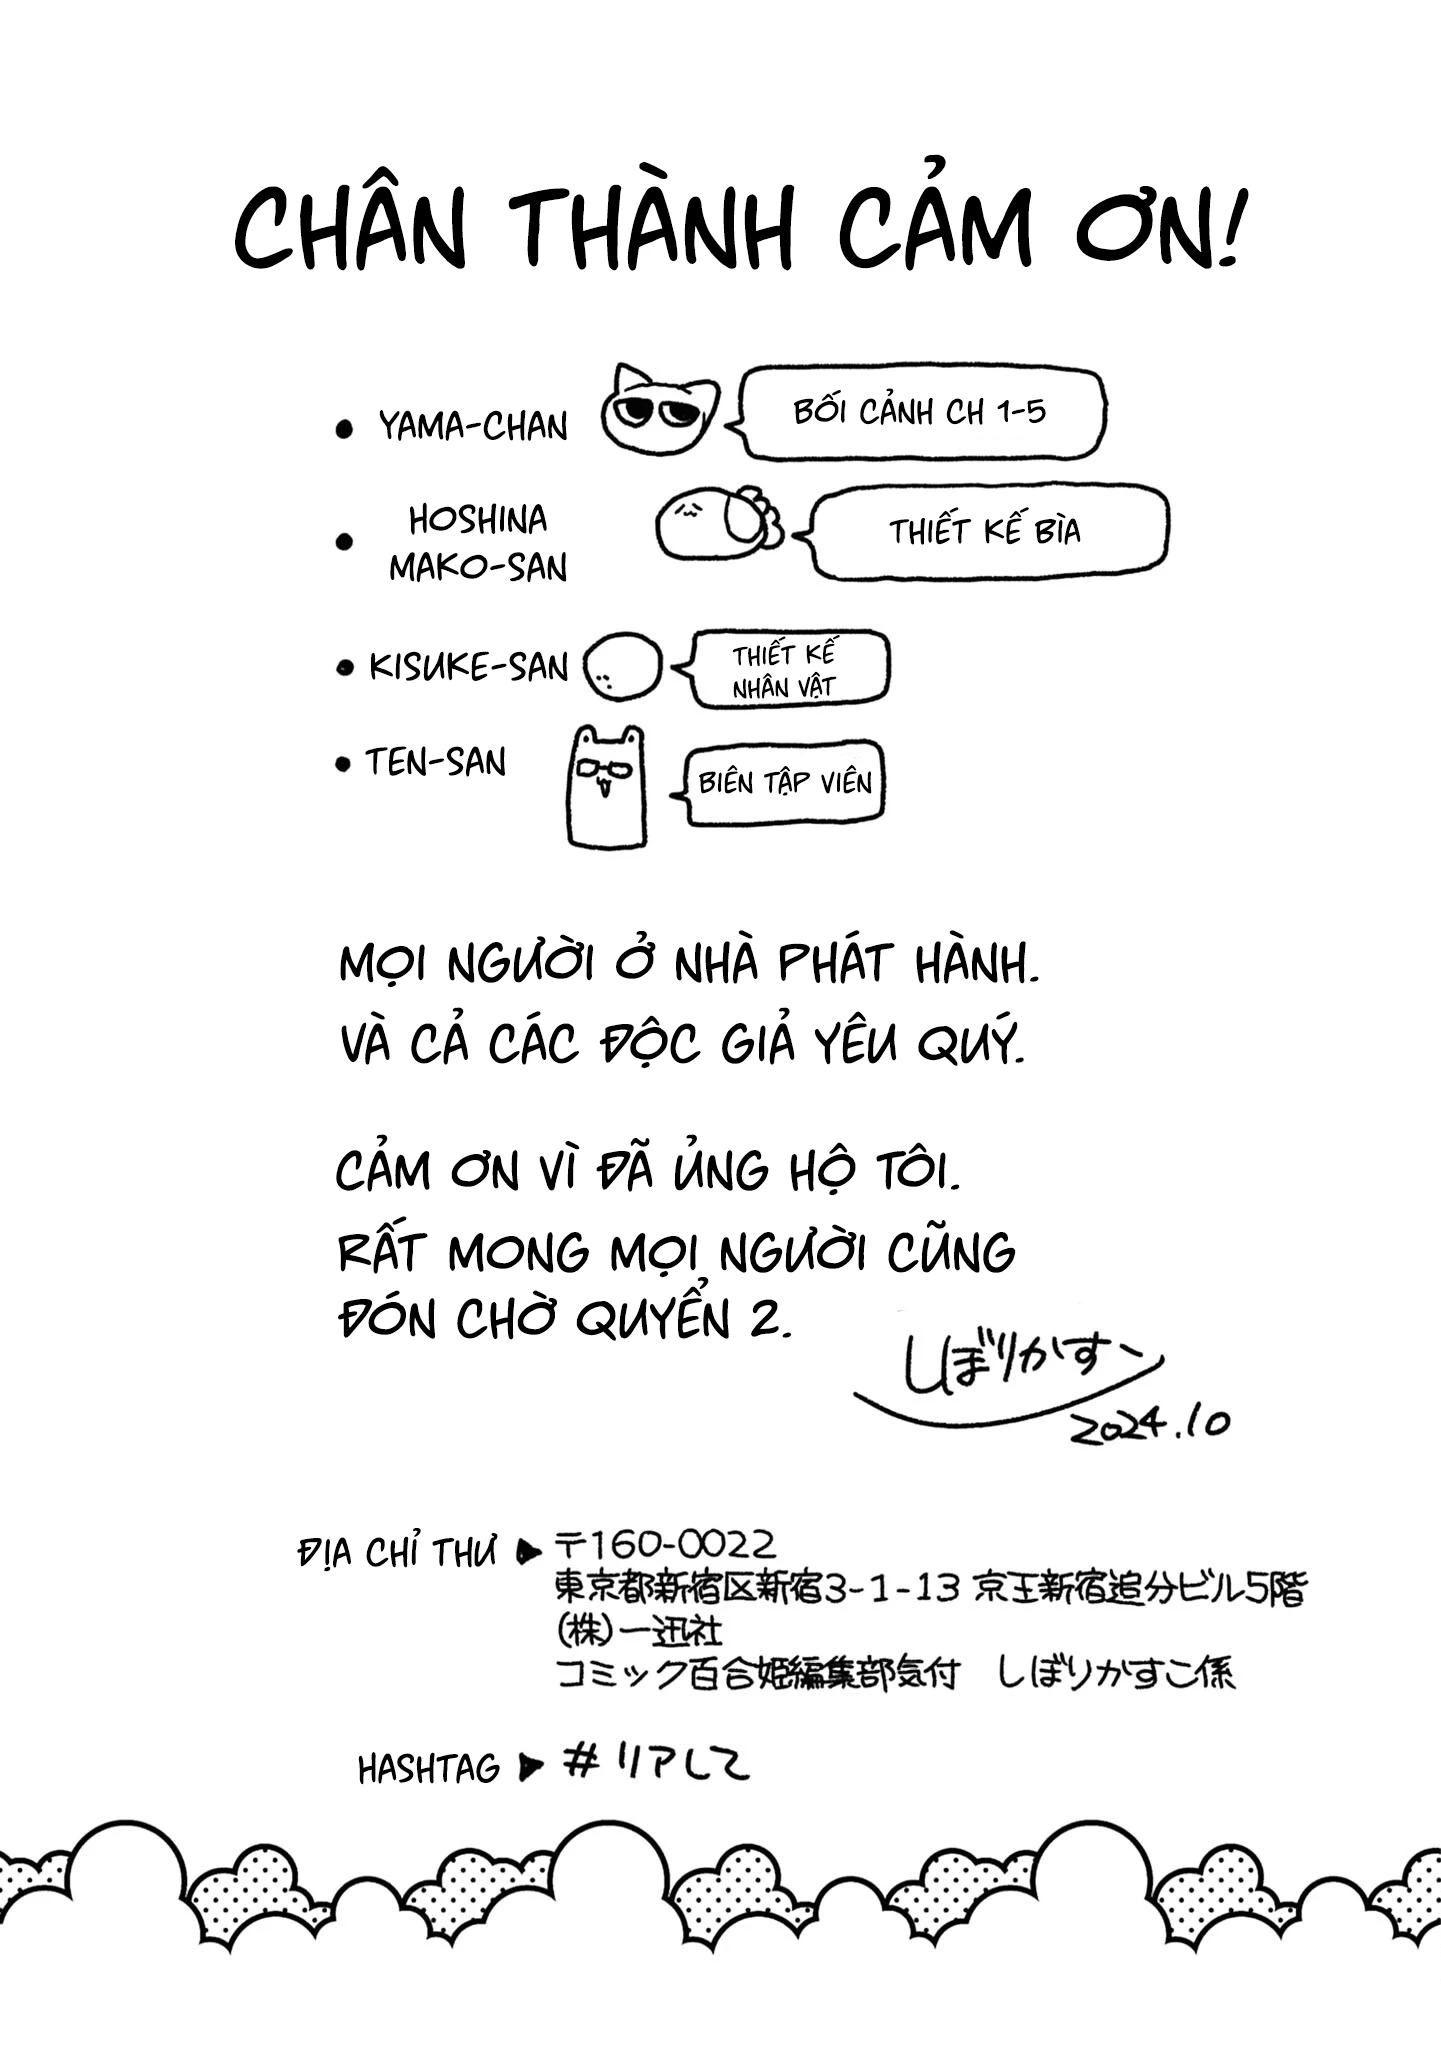 CHÂN THÀNH CẢM ƠN!
• YAMA-CHAN
BỐI CẢNH CH 1-5
• HOSHINA
MAKO-SAN
THIẾT KẾ BÌA
• KISUKE-SAN
THIẾT KẾ
NHÂN VẬT
• TEN-SAN
BIÊN TẬP VIÊN
MỌI NGƯỜI Ở NHÀ PHÁT HÀNH.
VÀ CẢ CÁC ĐỘC GIẢ YÊU QUÝ.
CẢM ƠN VÌ ĐÃ ỦNG HỘ TÔI.
RẤT MONG MỌI NGƯỜI CŨNG
ĐÓN CHỜ QUYỂN 2.
しぼりかすこ
2024.10
ĐỊA CHỈ THƯ ▶ 〒160-0022
東京都新宿区新宿3-1-13 京王新宿追分ビル5階
(株)一迅社
コミック百合姫編集部気付　しぼりかすこ係
HASHTAG ▶ #リアして